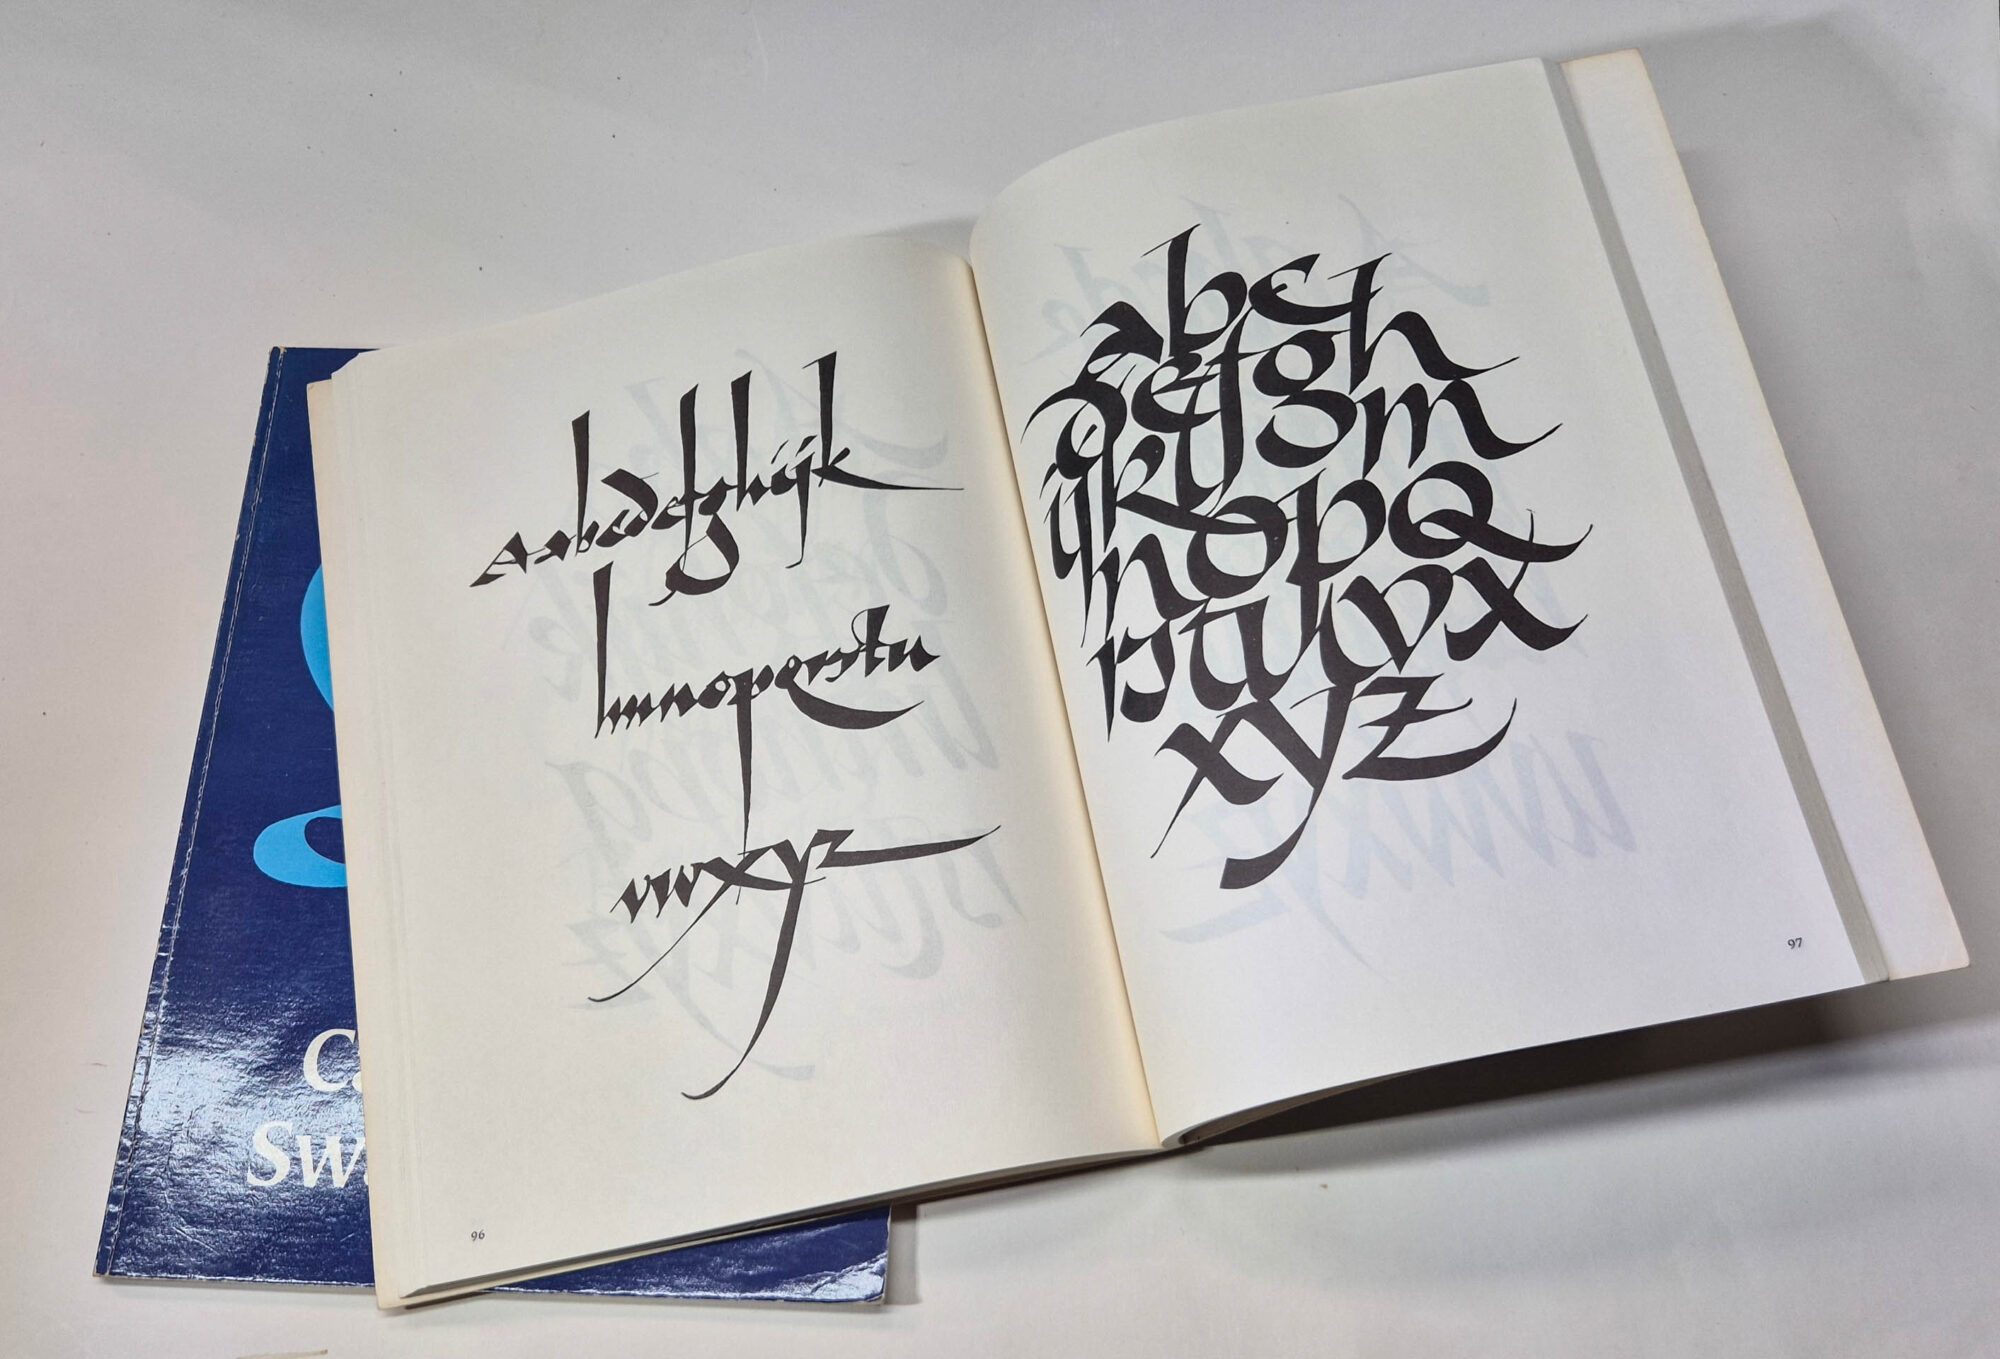 Aabcdefghijk
lmnopqrstu
vwxyz
96
abc
defgh
ijklm
nopq
xyz
97